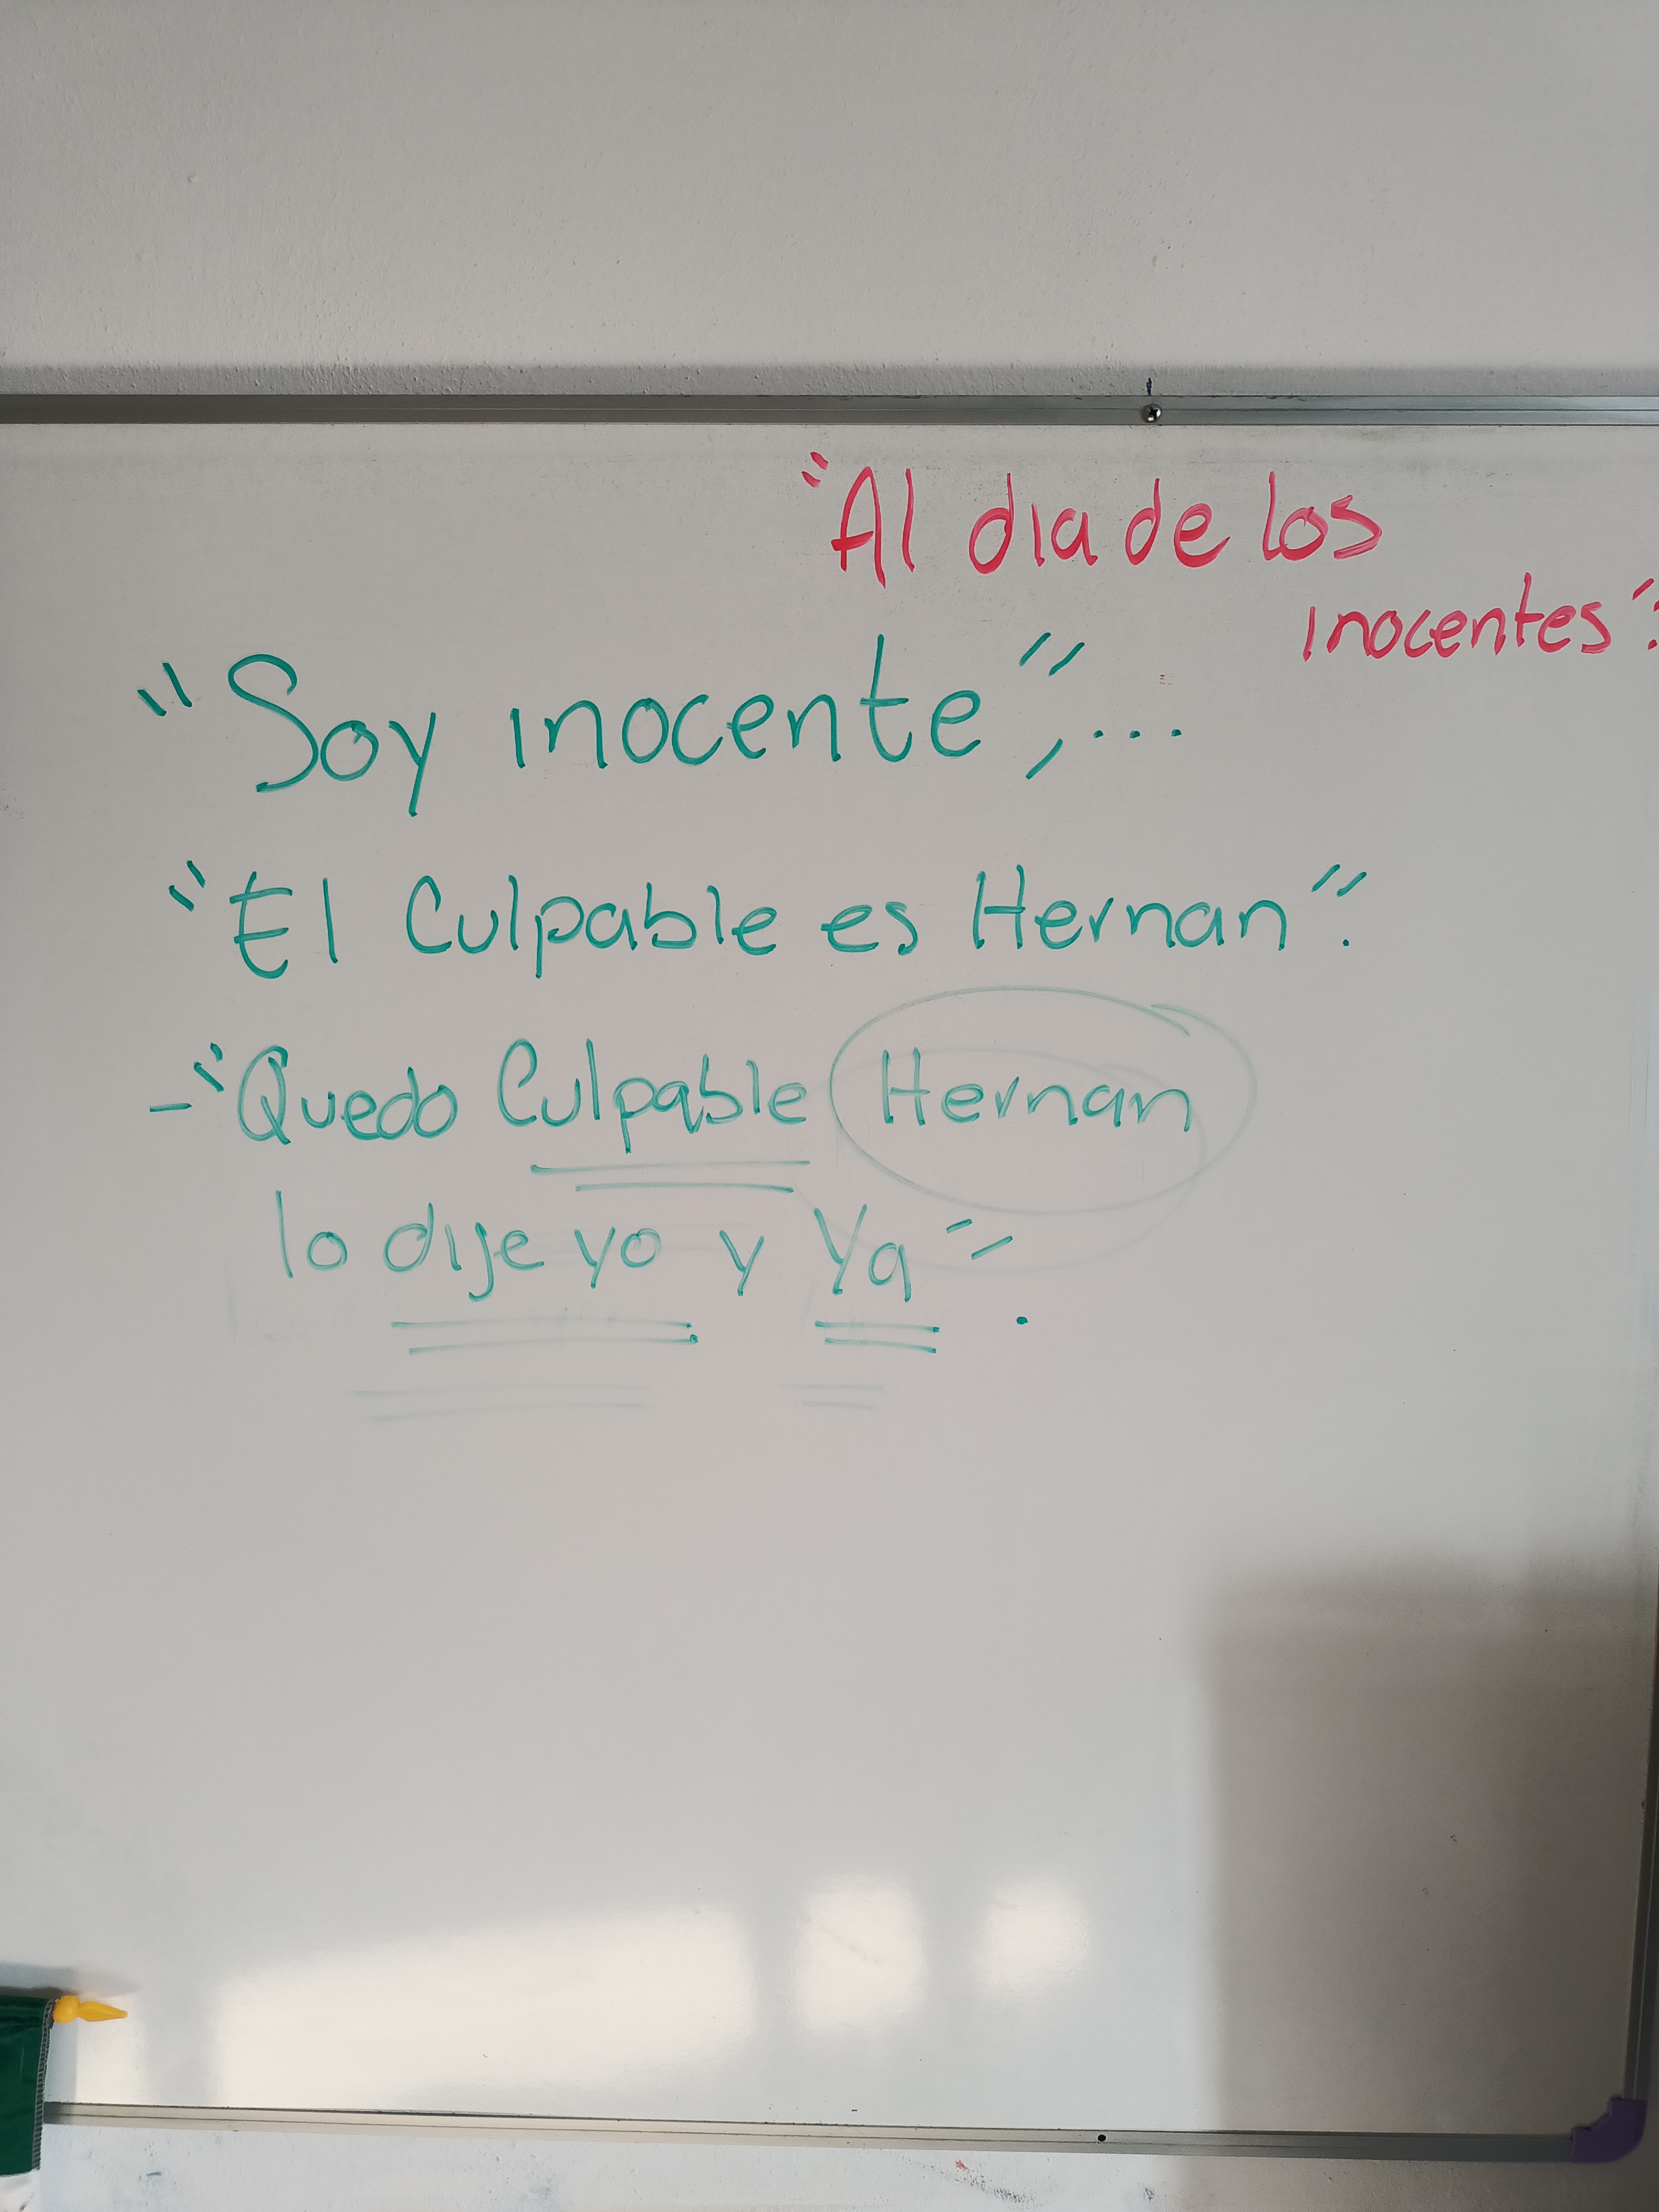 "Al dia de los
inocentes".
"Soy inocente",...
"El Culpable es Hernan".
-"Quedo Culpable Hernan
lo dije yo y Ya".